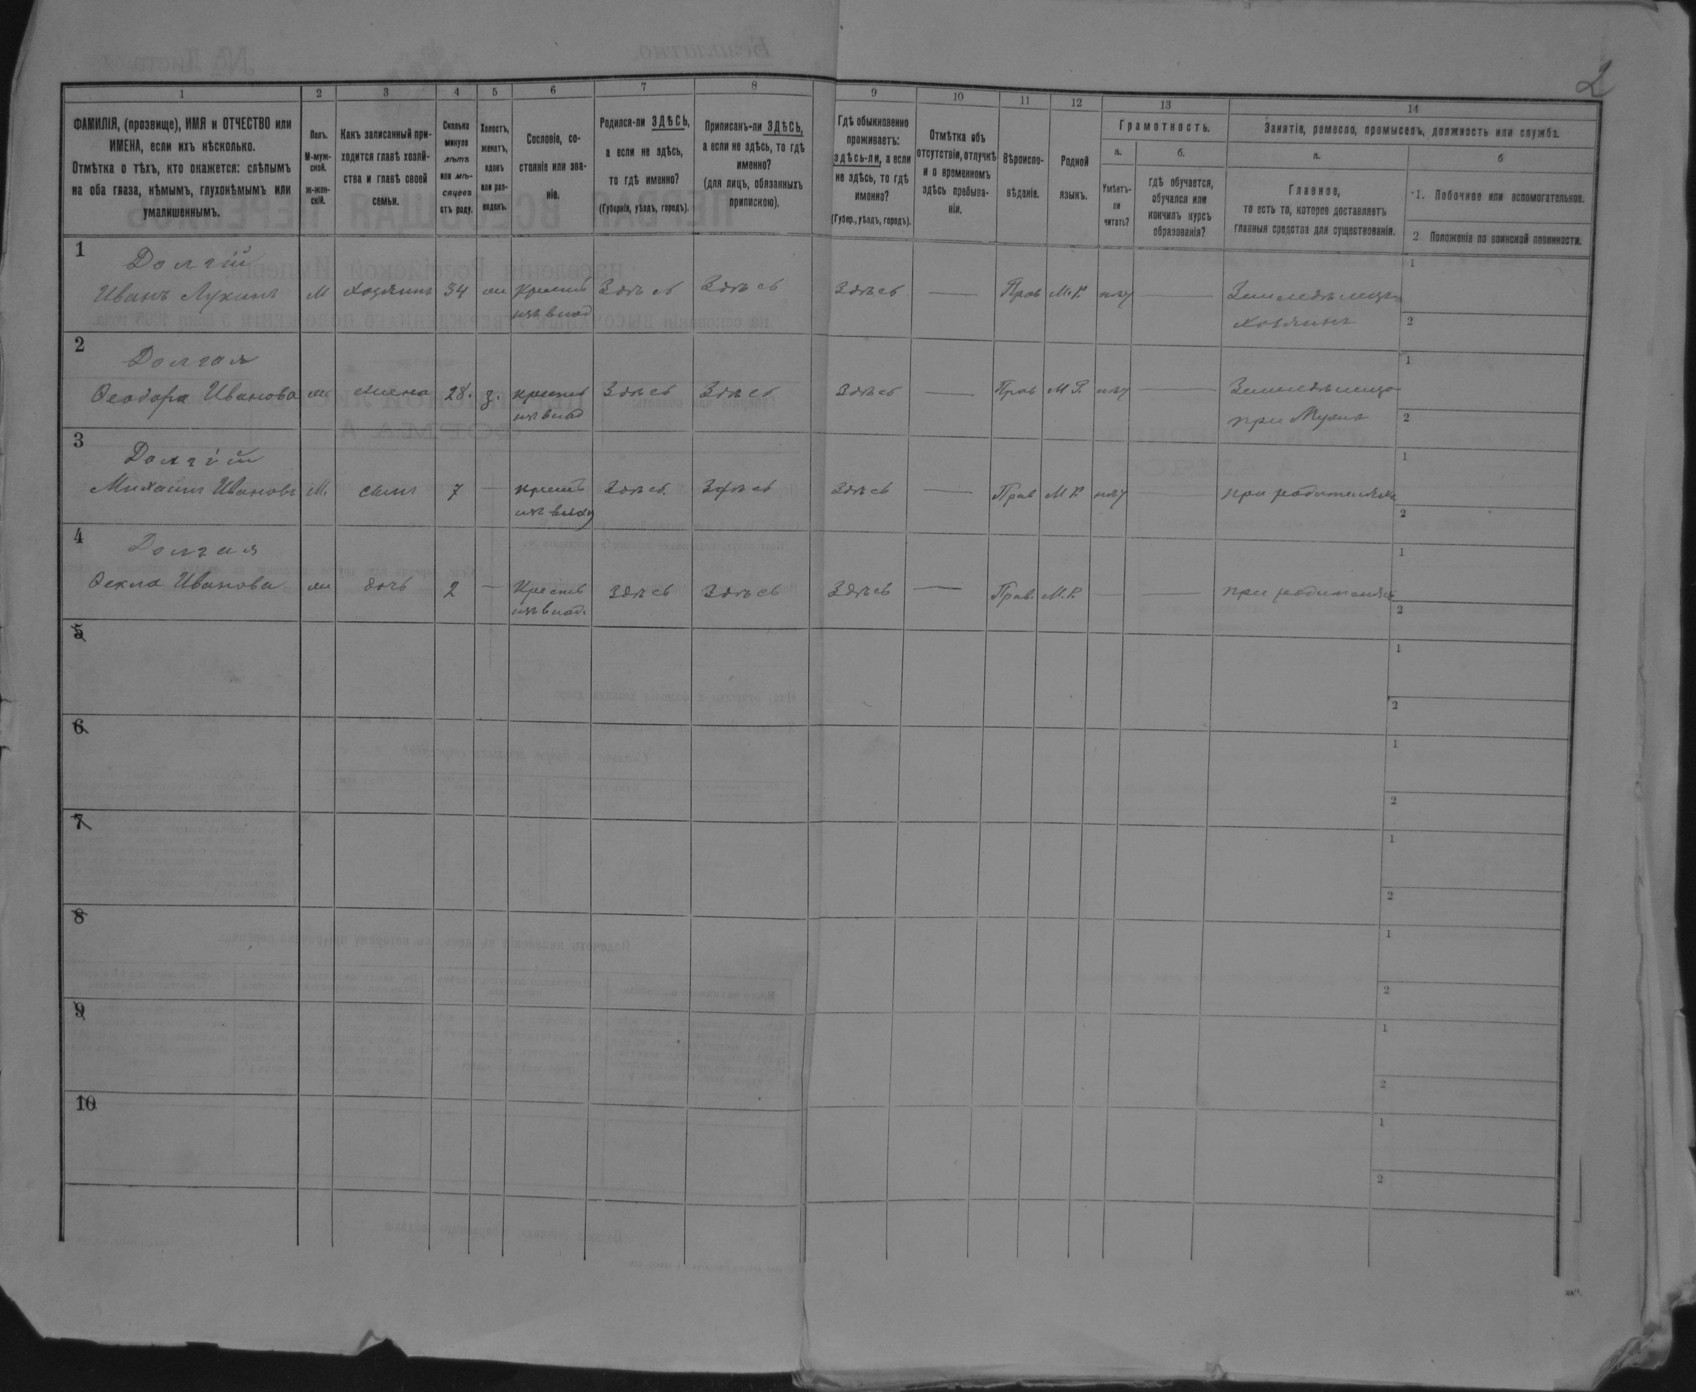 2
1 2 3 4 5 6 7 8 9 10 11 12 13 14
ФАМИЛІЯ, (прозвище), ИМЯ и ОТЧЕСТВО или
ИМЕНА, если ихъ нѣсколько.
Отмѣтка о тѣхъ, кто окажется: слѣпымъ
на оба глаза, нѣмымъ, глухонѣмымъ или
умалишеннымъ.
Полъ.
М-муж-
ской.
ж-жен-
скій.
Какъ записанный при-
ходится главѣ хозяй-
ства и главѣ своей
семьи.
Сколько
минуло
лѣтъ
или мѣ-
сяцевъ
отъ роду.
Холостъ,
женатъ,
вдовъ
или раз-
веденъ.
Сословіе, со-
стояніе или зва-
ніе.
Родился-ли ЗДѢСЬ,
а если не здѣсь,
то гдѣ именно?
(Губернія, уѣздъ, городъ).
Приписанъ-ли ЗДѢСЬ,
а если не здѣсь, то гдѣ
именно?
(для лицъ, обязанныхъ
припискою).
Гдѣ обыкновенно
проживаетъ:
здѣсь-ли, а если
не здѣсь, то гдѣ
именно?
(Губер., уѣздъ, городъ).
Отмѣтка объ
отсутствіи, отлучкѣ
и о временномъ
здѣсь пребыва-
ніи.
Вѣроиспо-
вѣданіе.
Родной
языкъ.
Грамотность.
а.
Умѣетъ-
ли
читать?
б.
гдѣ обучается,
обучался или
кончилъ курсъ
образованія?
Занятіе, ремесло, промыселъ, должность или служба.
а.
Главное,
то есть то, которое доставляетъ
главныя средства для существованія.
б
1. Побочное или вспомогательное.
2. Положеніе по воинской повинности.
1 Долгій 1
Иванъ Лукинъ М хозяинъ 34 Здѣсь Здѣсь Здѣсь — Прав М.Р. — Земледѣлецъ
хозяинъ 2
2 Долгая 1
Ѳеодора Иванова жена 28. з. Здѣсь Здѣсь Здѣсь — Прав М.Р. —
при Мужѣ 2
3 Долгій 1
Михаилъ Ивановъ М. сынъ 7 — Здѣсь Здѣсь Здѣсь — Прав М.Р. — при родителяхъ
2
4 Долгая 1
Ѳекла Иванова дочь 2 — Здѣсь Здѣсь Здѣсь — Прав М.Р. — — при родителяхъ
2
5 1
2
6 1
2
7 1
2
8 1
2
9 1
2
10 1
2